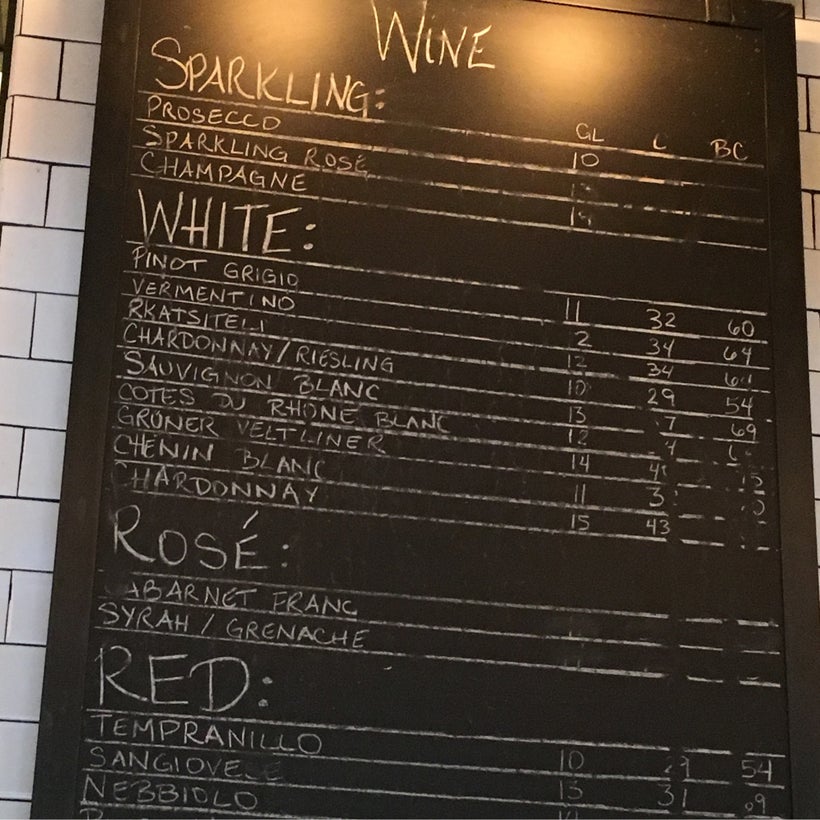 WINE
SPARKLING:
GL L BC
PROSECCO 10
SPARKLING ROSÉ
CHAMPAGNE
WHITE:
PINOT GRIGIO 11 32 60
VERMENTINO 2 34 64
RKATSITELI 12 34
CHARDONNAY/RIESLING 10 29 54
SAUVIGNON BLANC 13 7 69
COTES DU RHONE BLANC 12
GRÜNER VELTLINER 14
CHENIN BLANC 11
CHARDONNAY 15 43
ROSÉ:
ABARNET FRANC
SYRAH / GRENACHE
RED:
TEMPRANILLO 10 54
SANGIOVESE 13 31
NEBBIOLO